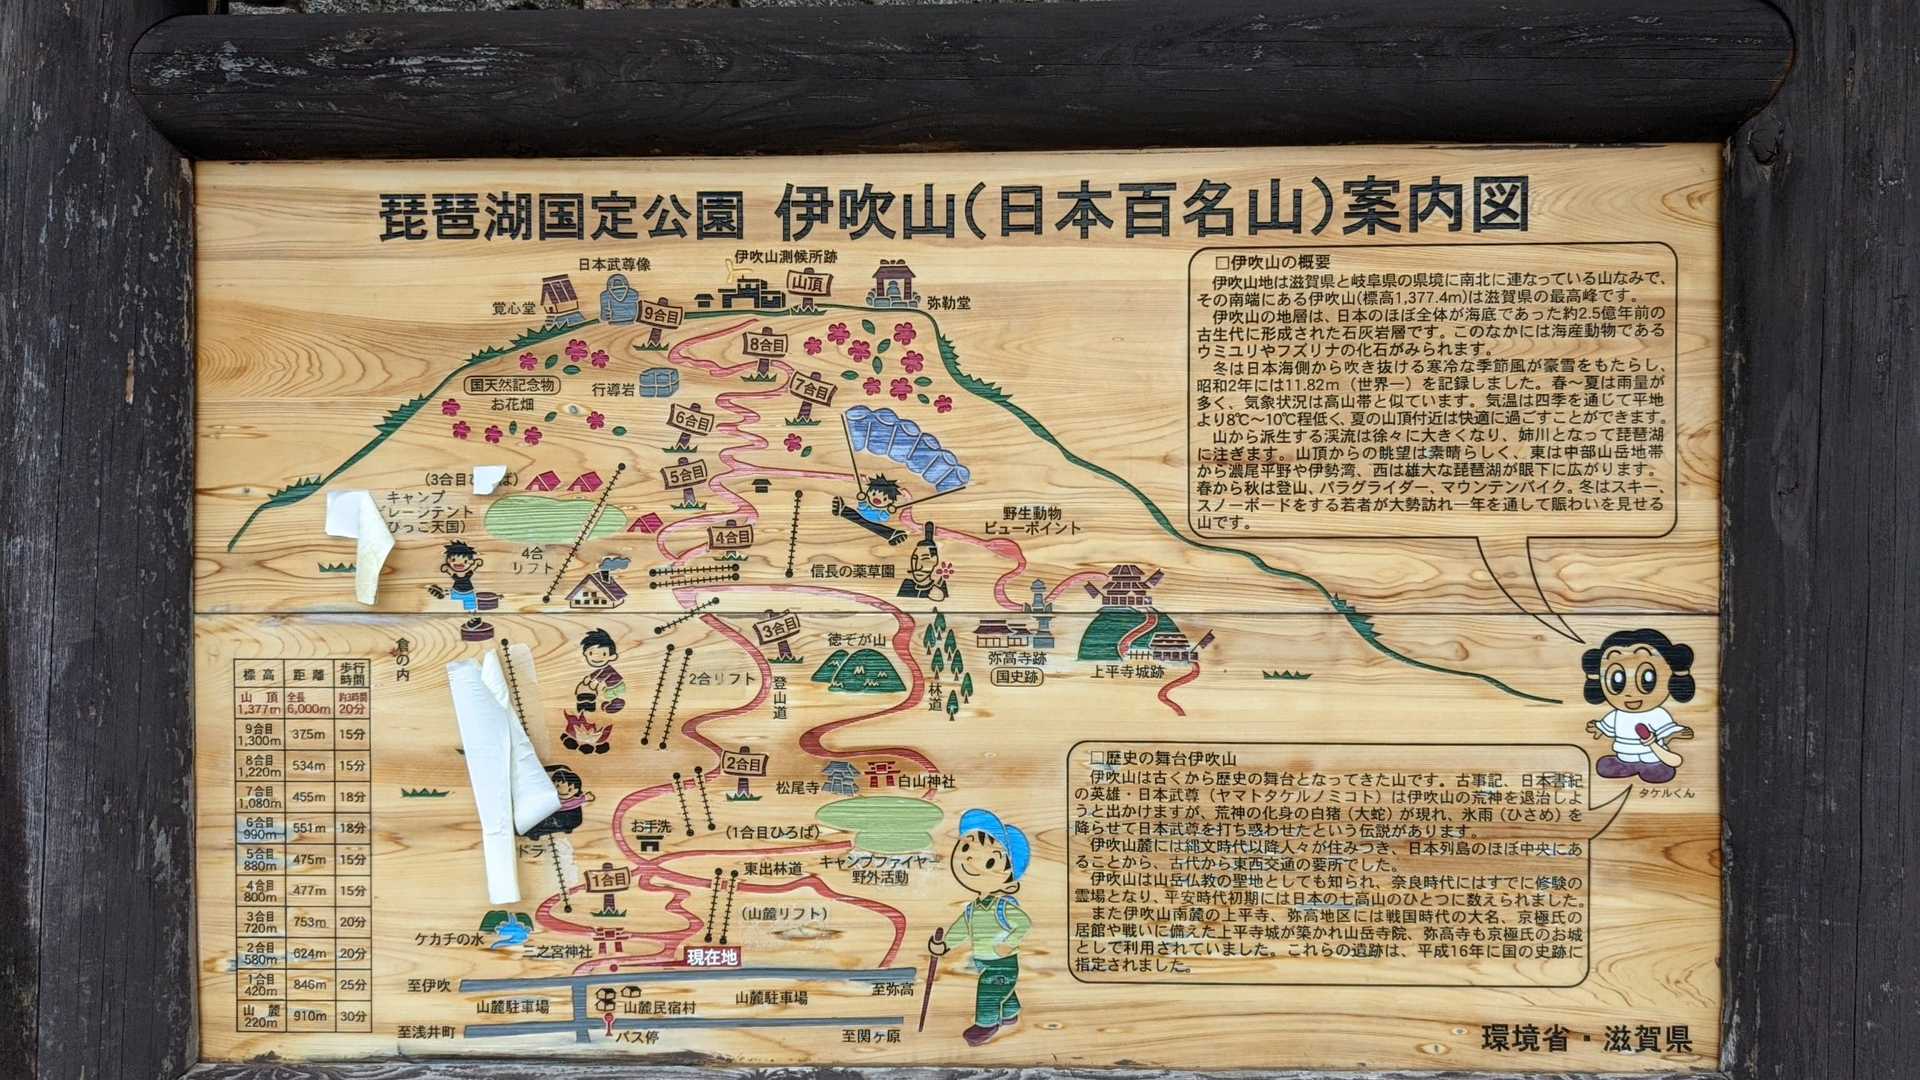 琵琶湖国定公園 伊吹山(日本百名山)案内図
日本武尊像
伊吹山測候所跡
山頂
覚心堂
弥勒堂
9合目
8合目
7合目
国天然記念物
お花畑
行導岩
6合目
5合目
(3合目ひ
ば)
キャンプ
レーンテント
ひっこ天国)
4合
リフト
4合目
野生動物
ビューポイント
信長の薬草園
3合目
徳ぞが山
弥高寺跡
国史跡
上平寺城跡
2合リフト
登山道
林道
2合目
松尾寺
白山神社
お手洗
(1合目ひろば)
キャンプファイヤー
野外活動
ドラ
1合目
東出林道
(山麓リフト)
ケカチの水
三之宮神社
現在地
至伊吹
至弥高
山麓駐車場
山麓民宿村
山麓駐車場
至浅井町
バス停
至関ヶ原
標高 距離 歩行時間
山頂 1,377m 全長 6,000m 約3時間 20分
9合目 1,300m 375m 15分
8合目 1,220m 534m 15分
7合目 1,080m 455m 18分
6合目 990m 551m 18分
5合目 880m 475m 15分
4合目 800m 477m 15分
3合目 720m 753m 20分
2合目 580m 624m 20分
1合目 420m 846m 25分
山麓 220m 910m 30分
□伊吹山の概要
伊吹山地は滋賀県と岐阜県の県境に南北に連なっている山なみで、
その南端にある伊吹山(標高1,377.4m)は滋賀県の最高峰です。
伊吹山の地層は、日本のほぼ全体が海底であった約2.5億年前の
古生代に形成された石灰岩層です。このなかには海産動物である
ウミユリやフズリナの化石がみられます。
冬は日本海側から吹き抜ける寒冷な季節風が豪雪をもたらし、
昭和2年には11.82m(世界一)を記録しました。春〜夏は雨量が
多く、気象状況は高山帯と似ています。気温は四季を通じて平地
より8℃〜10℃程低く、夏の山頂付近は快適に過ごすことができます。
山から派生する渓流は徐々に大きくなり、姉川となって琵琶湖
に注ぎます。山頂からの眺望は素晴らしく、東は中部山岳地帯
から濃尾平野や伊勢湾、西は雄大な琵琶湖が眼下に広がります。
春から秋は登山、パラグライダー、マウンテンバイク。冬はスキー、
スノーボードをする若者が大勢訪れ一年を通して賑わいを見せる
山です。
タケルくん
□歴史の舞台伊吹山
伊吹山は古くから歴史の舞台となってきた山です。古事記、日本書紀
の英雄・日本武尊(ヤマトタケルノミコト)は伊吹山の荒神を退治しよ
うと出かけますが、荒神の化身の白猪(大蛇)が現れ、氷雨(ひさめ)を
降らせて日本武尊を打ち惑わせたという伝説があります。
伊吹山麓には縄文時代以降人々が住みつき、日本列島のほぼ中央にあ
ることから、古代から東西交通の要所でした。
伊吹山は山岳仏教の聖地としても知られ、奈良時代にはすでに修験の
霊場となり、平安時代初期には日本の七高山のひとつに数えられました。
また伊吹山南麓の上平寺、弥高地区には戦国時代の大名、京極氏の
居館や戦いに備えた上平寺城が築かれ山岳寺院、弥高寺も京極氏のお城
として利用されていました。これらの遺跡は、平成16年に国の史跡に
指定されました。
環境省・滋賀県